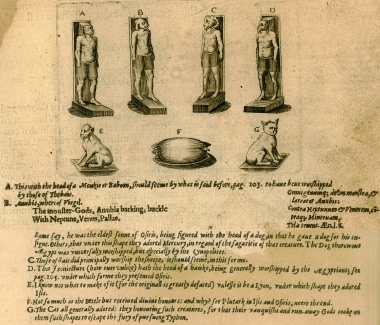 A
B
C
D
E
F
G
A. This with the head of a Monkie or Baboon, should seeme by what is said before, pag. 103. to haue bene worshipped
by those of Thebais.
B. Anubis, whereof Virgil.
The monster-Gods, Anubis barking, buckle
With Neptune, Venus, Pallas.
Omnigenumq; deûm monstra, &
latrator Anubis:
Contra Neptunum & Venerem,
Mineruam,
Tela tenent. Æn. l. 8.
Some say, he was the eldest sonne of Osiris, being figured with the head of a dog, in that he gaue a dog for his en-
signe. Others, that vnder this shape they adored Mercury, in regard of the sagacitie of that creature. The Dog throughout
Ægypt was vniuersally worshipped, but especially by the Cynopolites.
C. Those of Sait did principally worship the sheepe, as should seeme, in this forme.
D. That I conicture (how euer vnlike) hath the head of a hauke, being generally worshipped by the Ægyptians, see
pag. 105. vnder which forme they presented Osiris.
E. I know not what to make of it (for the originall is greatly defaced) vnlesse it be a Lyon, vnder which shape they adored
Isis.
F. Not so much as the Beetle but receiued diuine honours: and why? see Plutark in Isis and Osiris, neere the end.
G. The Cat all generally adored: they honouring such creatures, for that their vanquished and run-away Gods tooke on
them such shapes to escape the fury of pursuing Typhon.